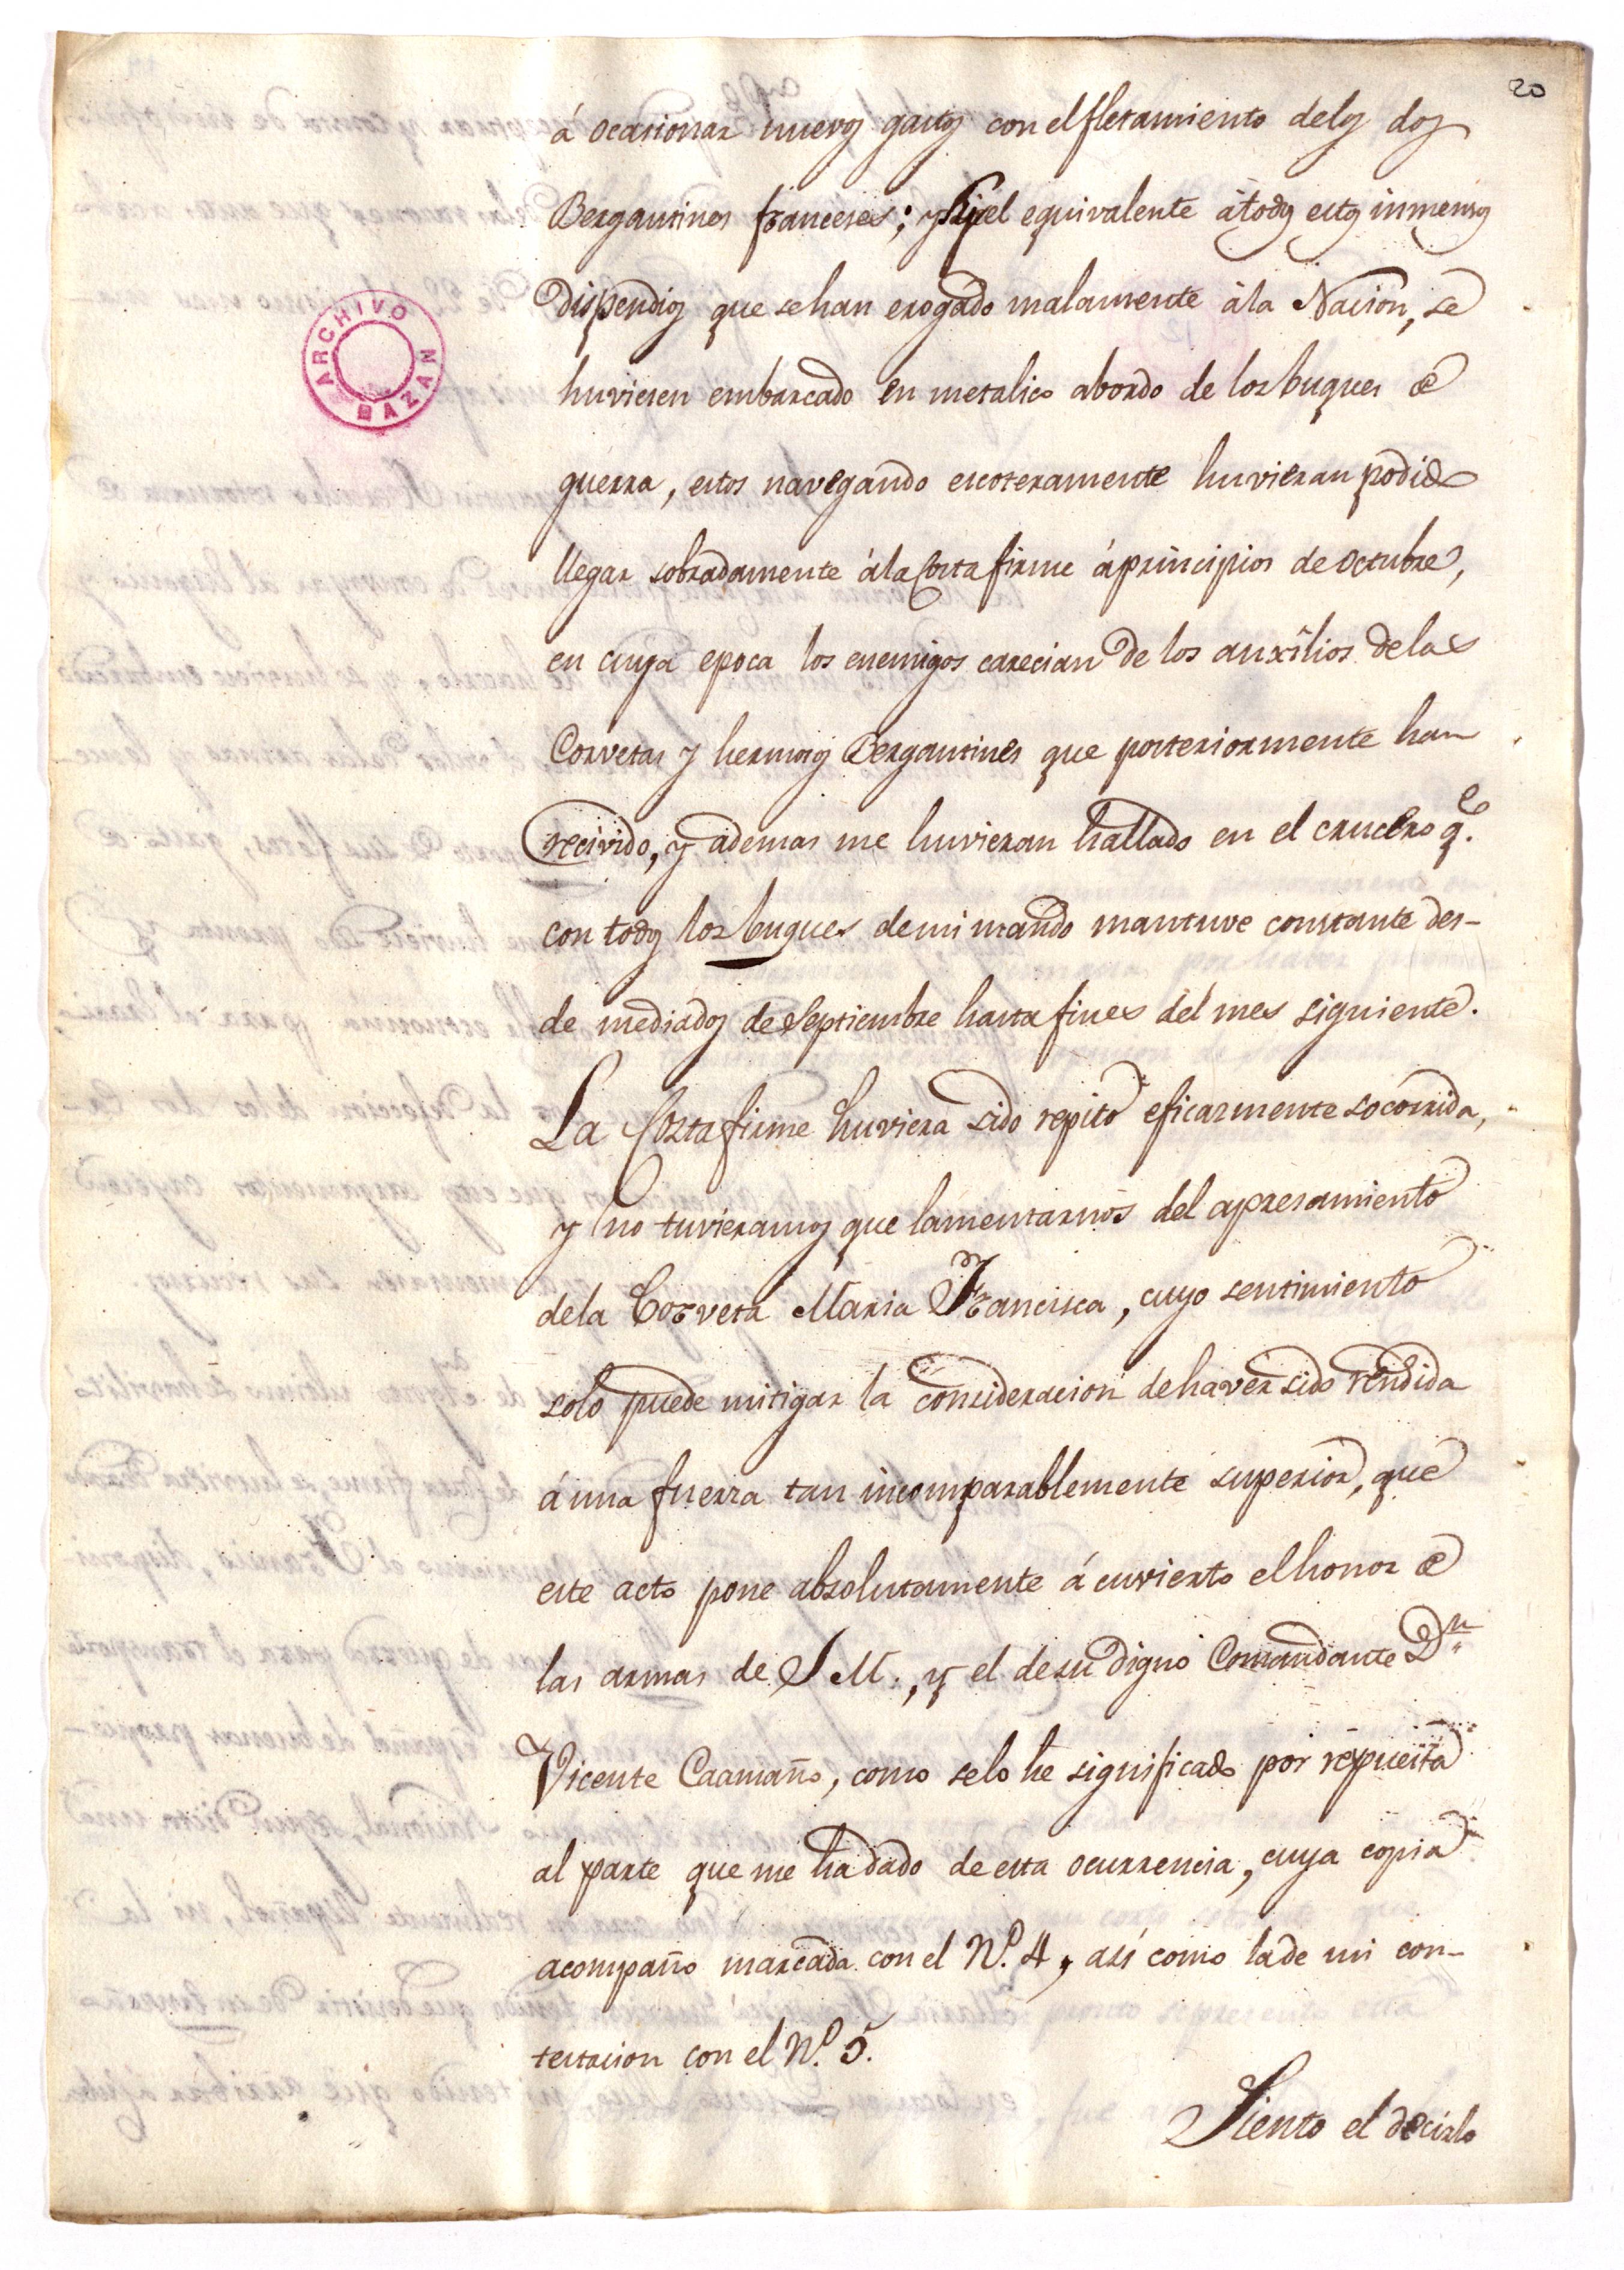 20
á ocasionar nuevos gastos con el fletamiento delos dos
Bergantines franceses; y si el equivalente átodos estos inmensos
dispendios que se han erogado malamente ála Nacion, se
huviesen embarcado en metalico abordo de los buques de
guerra, estos navegando escoteramente huvieran podido
llegar sobradamente ála Costa firme áprincipios de Octubre,
en cuya epoca los enemigos carecian de los auxîlios delas
Corvetas y hermosos Bergantines que posteriormente han
recivido, y ademas me huvieran hallado en el crucero q.e
con todos los buques demi mando mantuve constante des-
de mediados de Septiembre hasta fines del mes siguiente.
La Costa firme huviera sido repito eficazmente socorrida,
y no tuvieramos que lamentarnos del apresamiento
dela Corveta Maria Francisca, cuyo sentimiento
solo puede mitigar la consideracion dehaver sido rendida
á una fuerza tan incomparablemente superior, que
este acto pone absolutamente á cuvierto el honor de
las armas de S M., y el desu digno Comandante Dn
Vicente Caamaño, como selo he significado por respuesta
al parte que me ha dado de esta ocurrencia, cuya copia
acompaño marcada con el N.o 4, así como lade mi con-
testacion con el N.o 5.
Siento el decirlo
ARCHIVO BAZAN